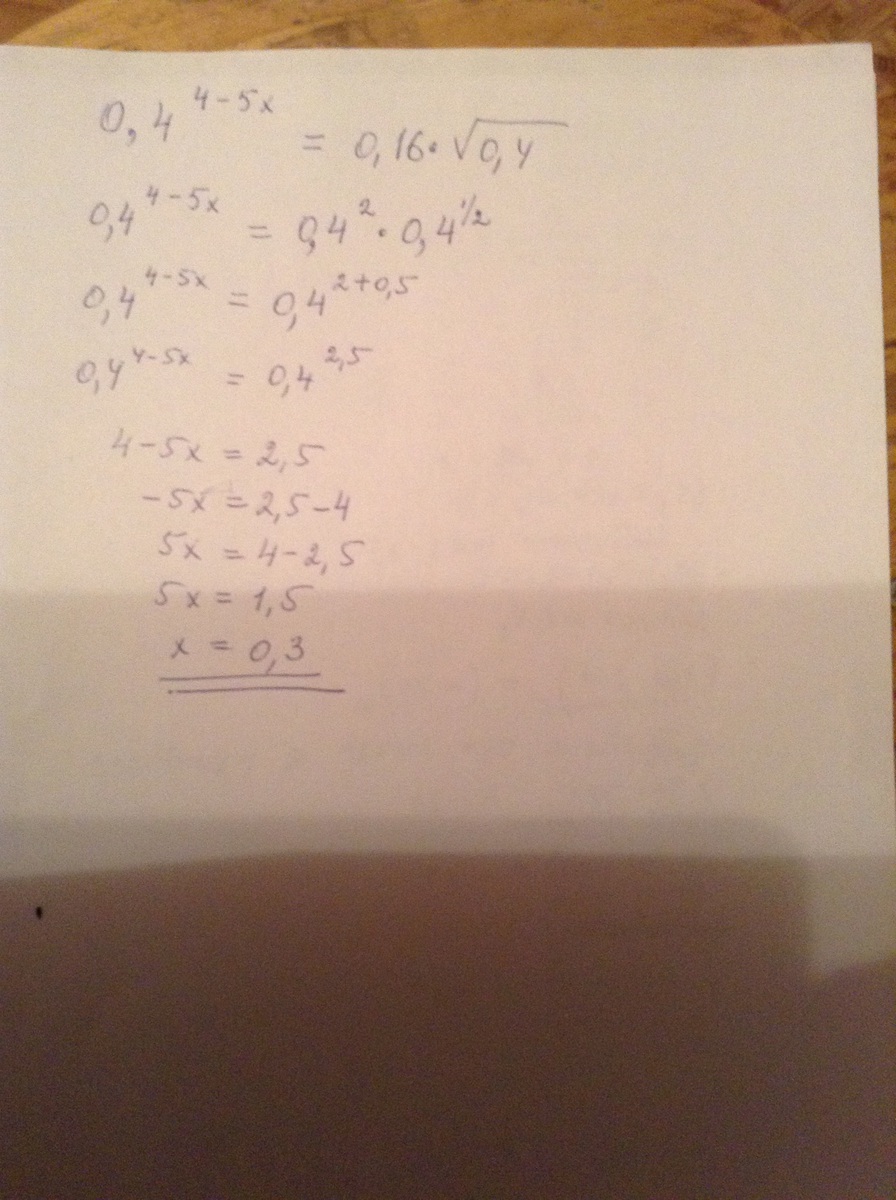 0,4^(4-5x) = 0,16·√0,4
0,4^(4-5x) = 0,4^2 · 0,4^(1/2)
0,4^(4-5x) = 0,4^(2+0,5)
0,4^(4-5x) = 0,4^(2,5)
4-5x = 2,5
-5x = 2,5-4
5x = 4-2,5
5x = 1,5
x = 0,3